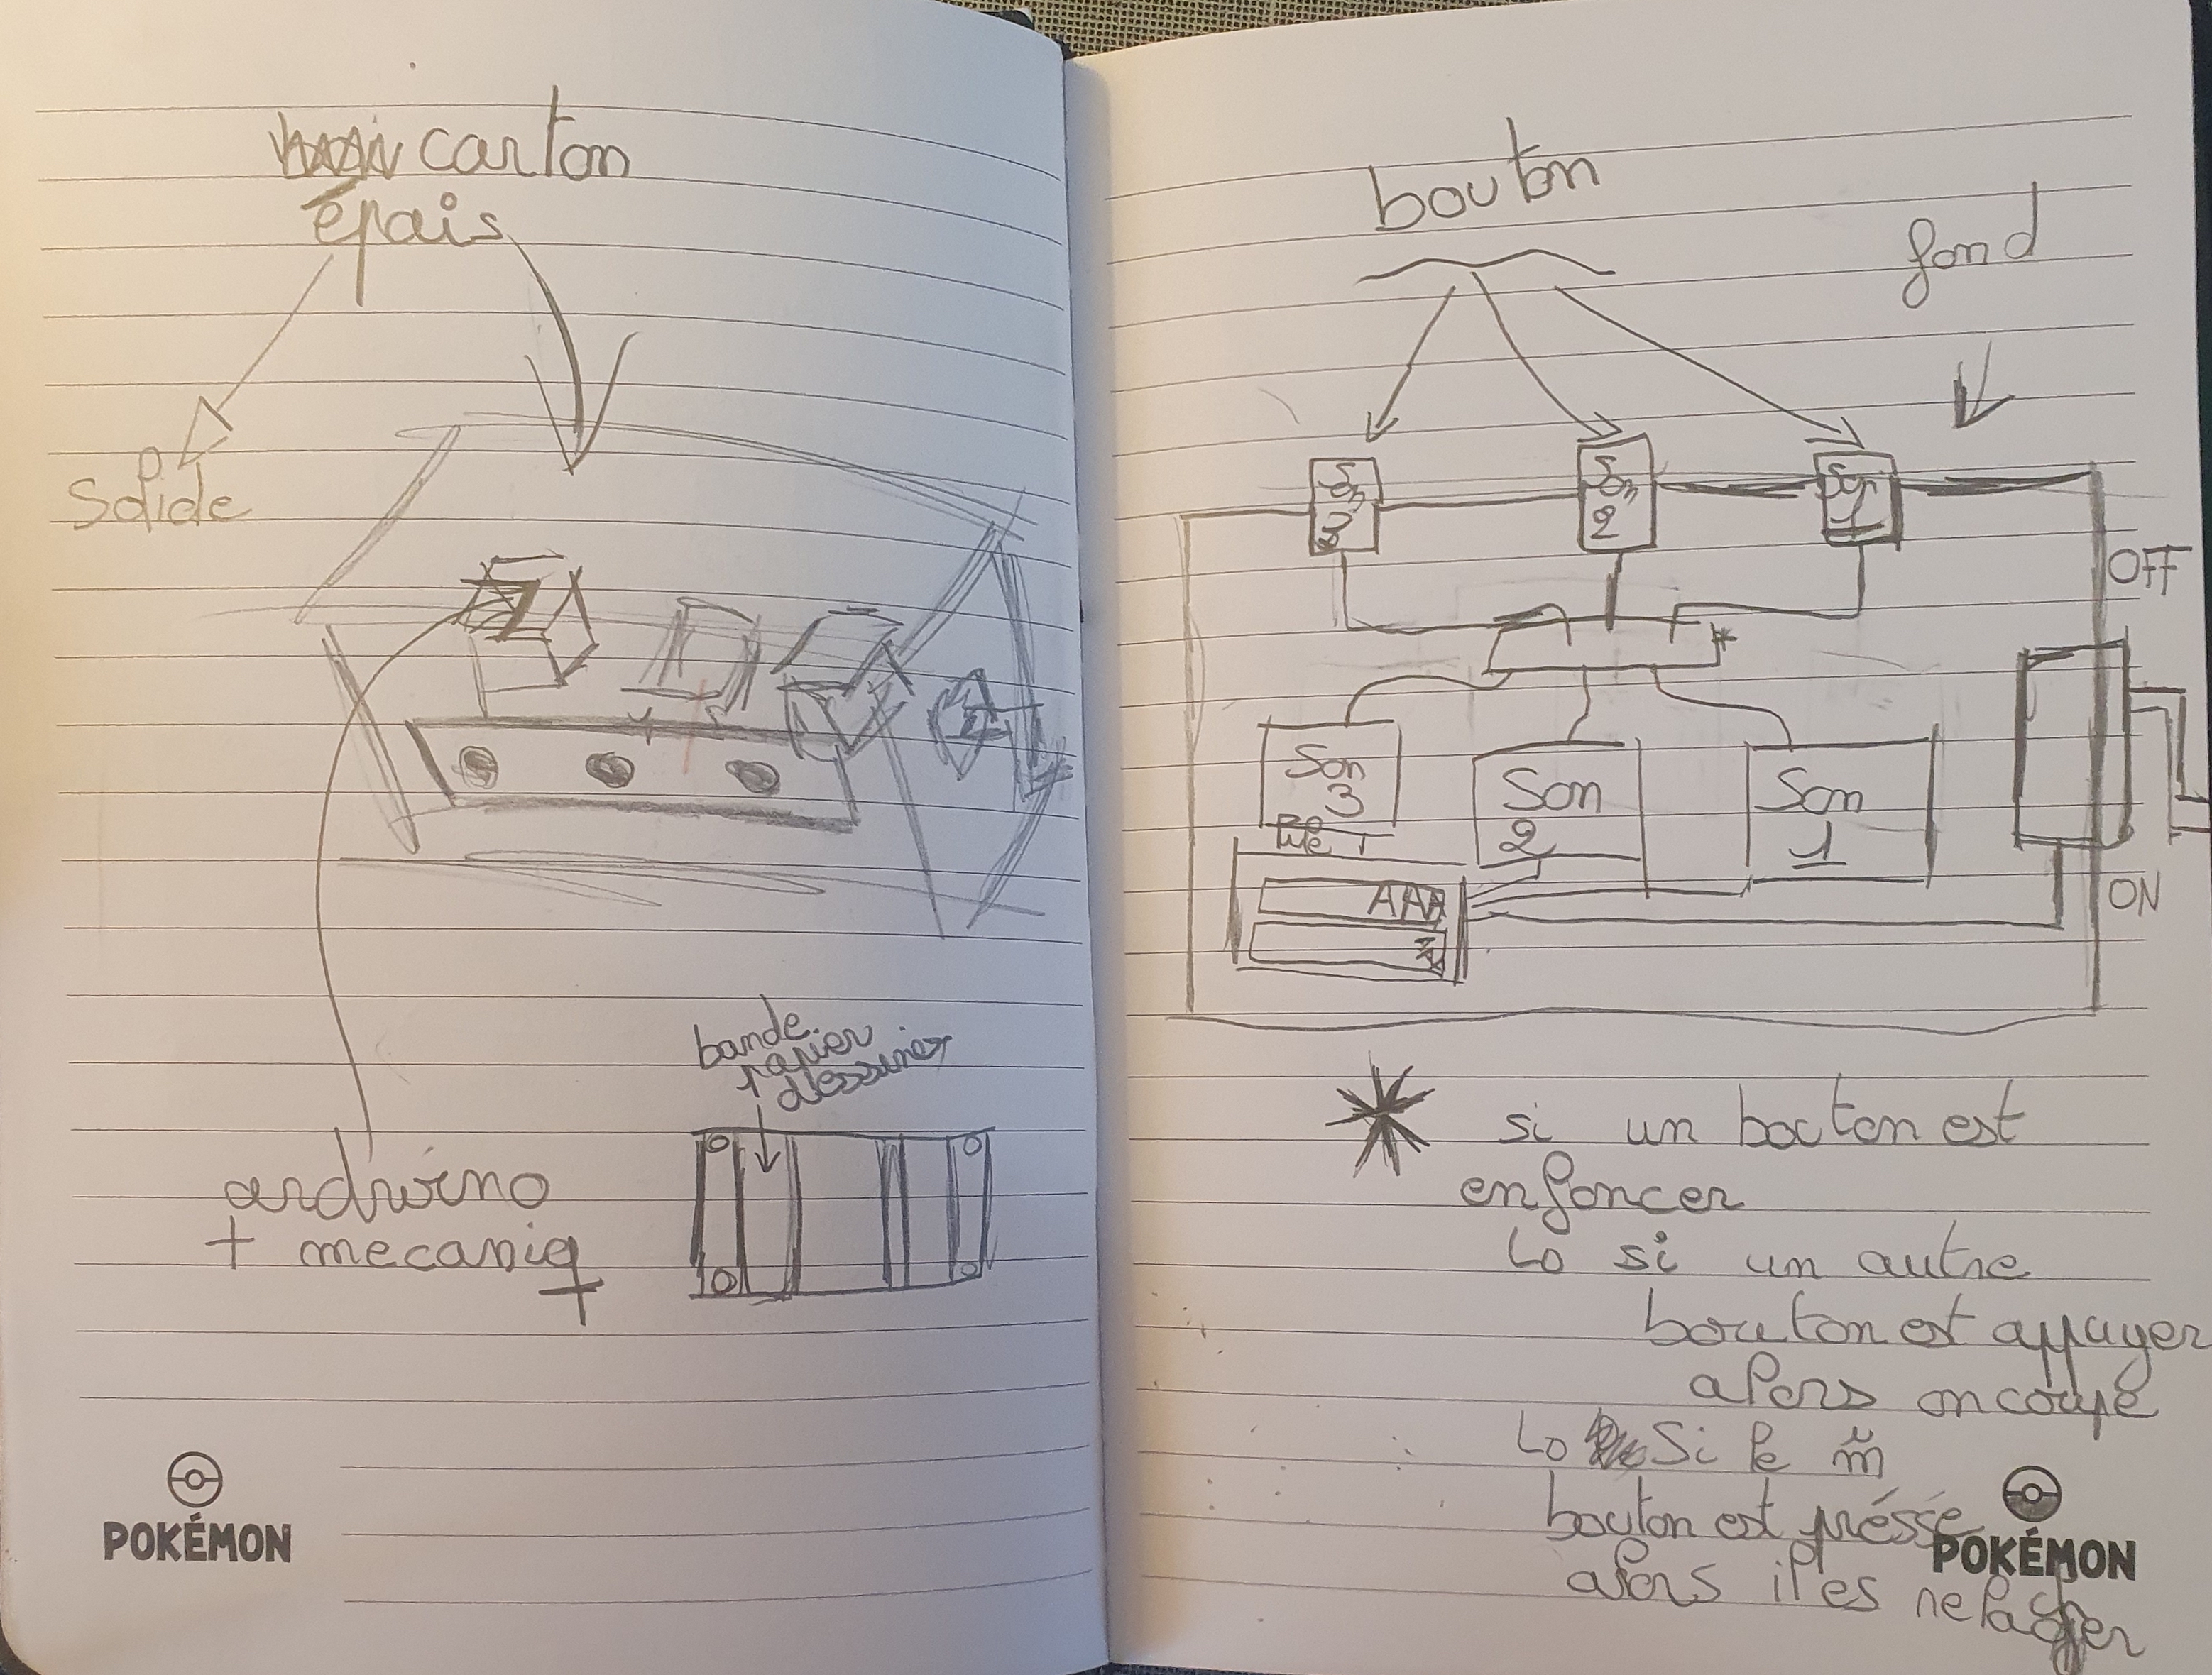 carton
épais
Solide
bande
papier
dessiner
ardwino
+ mecaniq
POKÉMON
bouton
fond
Son
3
Son
2
Son
1
OFF
Son
3
Son
2
Son
1
Pile
AAA
ON
si un bouton est
enfoncer
si un autre
bouton est appuyer
alors on coupe
Si le m̃
bouton est préssé
alors il es relacher
POKÉMON